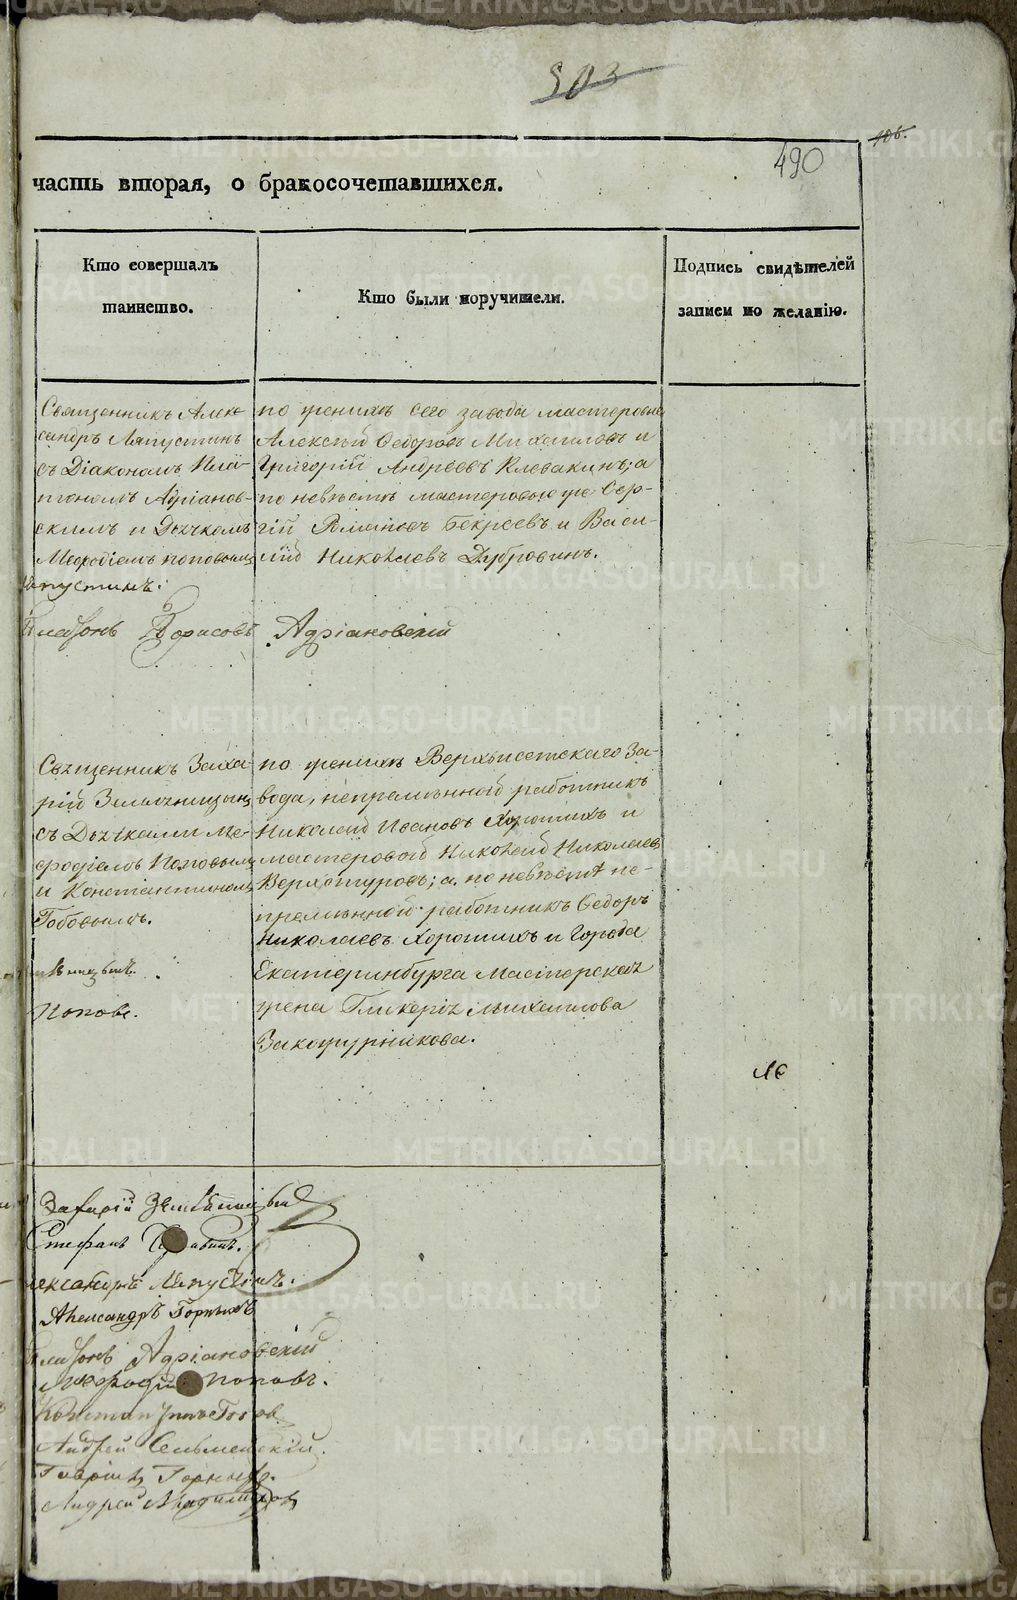 503
106.
490
часть вторая, о бракосочетавшихся.
Кто совершалъ
таинство.
Кто были поручители.
Подпись свидѣтелей
записи по желанію.
Священникъ Алек-
сандръ Ляпустинъ
съ Діакономъ Пла-
тономъ Адріанов-
скимъ и Дьячкомъ
Меѳодіемъ Поповымъ
по женихѣ сего завода мастеровые
Алексѣй Ѳедоровъ Михаиловъ и
Григорій Андреевъ Клевакинъ; а
по невѣстѣ мастеровые же Сер-
гій Романовъ Бекреевъ и Васи-
лій Николаевъ Дубровинъ.
Ляпустинъ.
Платонъ Борисовъ Адріановскій
Священникъ Заха-
рій Земляницынъ
съ Дьячками Ме-
ѳодіемъ Поповымъ
и Константиномъ
по женихѣ Верхъисетскаго За-
вода, непремѣнной работникъ
Николай Ивановъ Хорошихъ и
мастеровой Николай Николаевъ
Верхотуровъ; а по невѣстѣ не-
премѣнной работникъ Ѳедоръ
Николаевъ Хорошихъ и Города
Екатеринбурга Мастерская
жена Гликерія Михаилова
Поповъ.
Захарій Земляницынъ
Стефанъ
Александръ Ляпустинъ.
Александръ Горныхъ
Платонъ Адріановскій
Меѳодій Поповъ.
Андрей Сельменскій.
Андрей